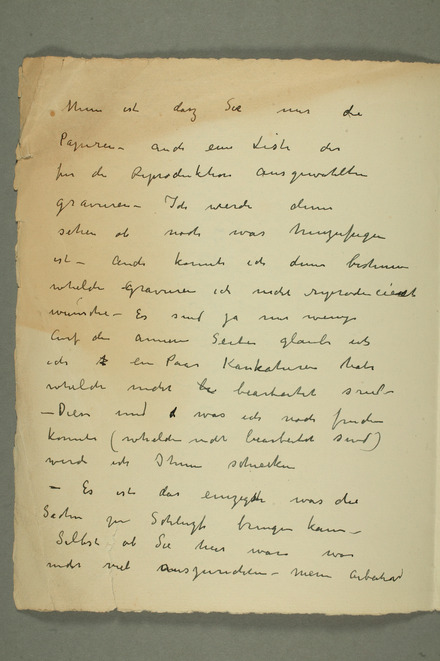 ist daß Sie mir die
Papieren – auch eine Liste der
für die Reproduktion ausgewählten
gravuren – Ich werde dann
sehen ob noch was hinzufugen
ist – Auch konnte ich dann bestimmen
whelche Gravuren ich nicht reproducieert
wünsche – Es sind ja nur wenige
Auf der annern Seiten glaube ich
ich ein Paar Karikaturen habe
whelche nicht bearbeitet sind –
– Diese und was ich noch finden
konnte (whelche nicht bearbeitet sind)
werde ich Ihnen schicken
– Es ist das einzige was die
Sachen zu bringen kann –
Selbst ob Sie hier waren war
nicht viel auszurichten – mein